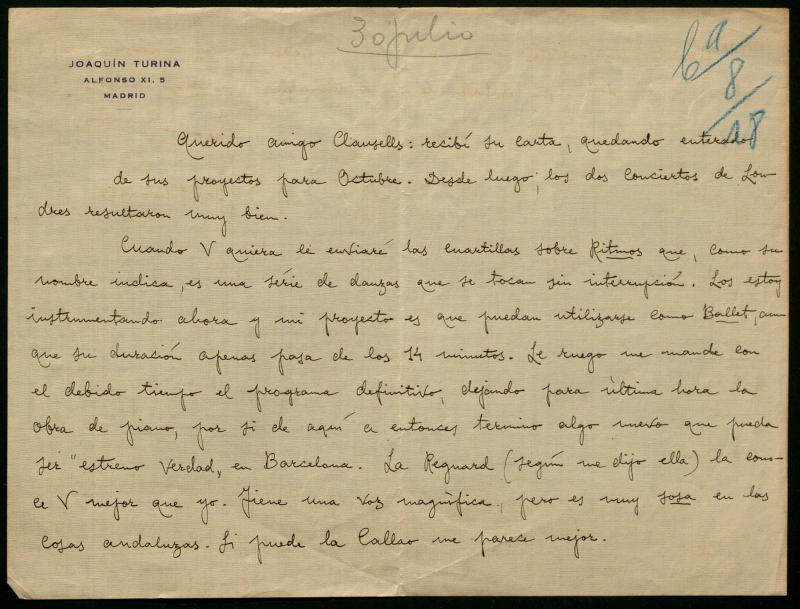 30 julio
6 a/8/28
JOAQUÍN TURINA
ALFONSO XI, 5
MADRID
Querido amigo Clausells: recibí su carta, quedando enterado
de sus proyectos para Octubre. Desde luego, los dos conciertos de Lon-
dres resultaron muy bien.
Cuando V quiera le enviaré las cuartillas sobre Ritmos que, como su
nombre indica, es una serie de danzas que se tocan sin interrupción. Los estoy
instrumentando ahora y mi proyecto es que puedan utilizarse como Ballet, aun-
que su duración apenas pasa de los 14 minutos. Le ruego me mande con
el debido tiempo el programa definitivo, dejando para última hora la
obra de piano, por si de aquí a entonces termino algo nuevo que pueda
ser "estreno verdad", en Barcelona. La Regnard (según me dijo ella) la cono-
ce V mejor que yo. Tiene una voz magnífica, pero es muy sosa en las
cosas andaluzas. Si puede la Callao me parece mejor.